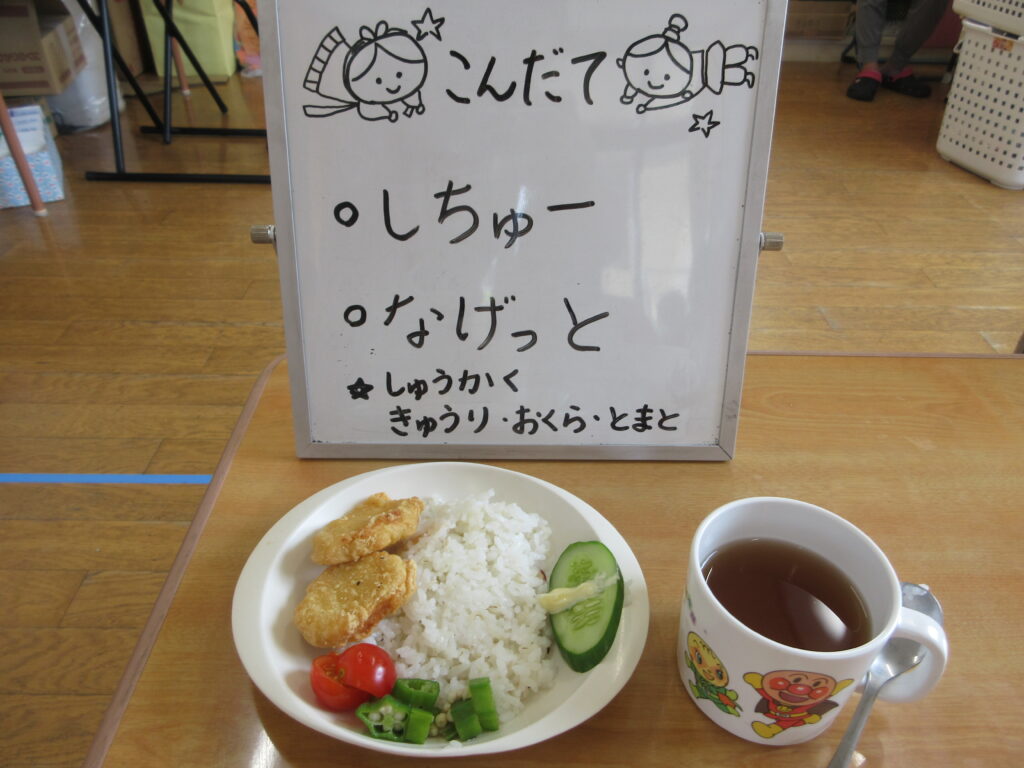 こんだて
しちゅー
なげっと
☆しゅうかく
きゅうり・おくら・とまと